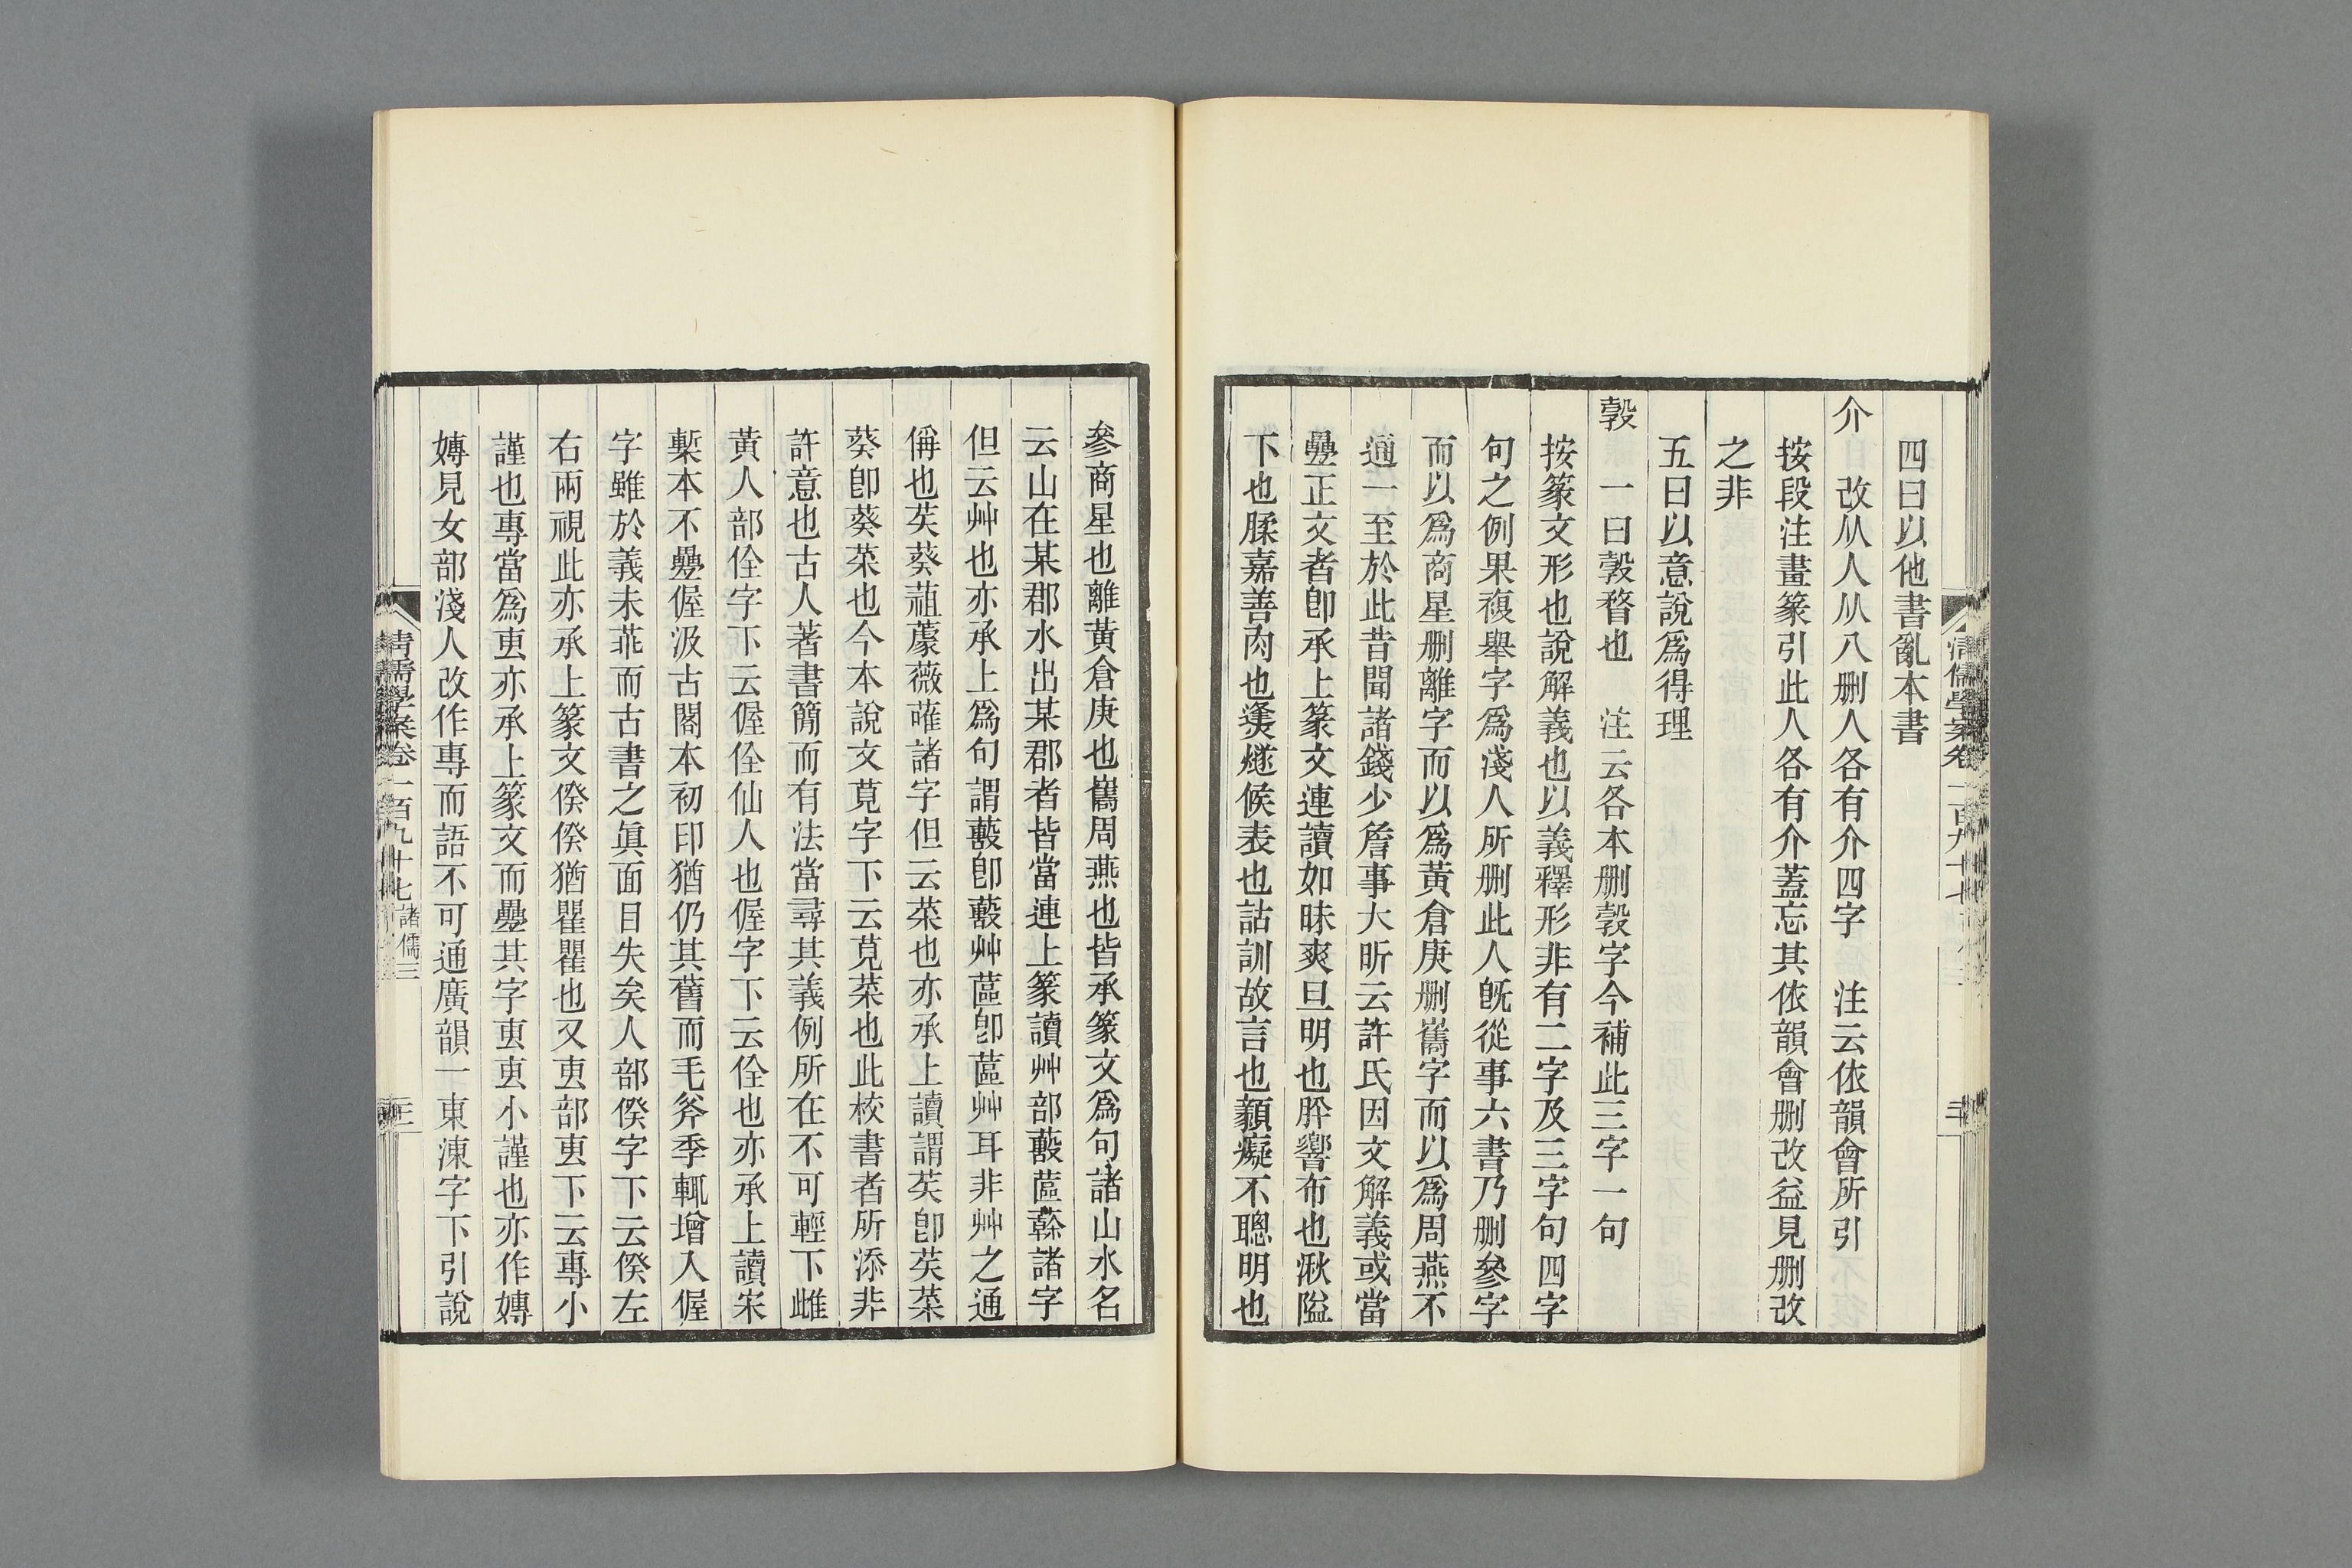 四曰以他書亂本書
介　改从人从八刪人各有介四字　注云依韻會所引
按段注畫篆引此人各有介蓋忘其依韻會刪改益見刪改
之非
五曰以意說爲得理
瞉　一曰瞉瞀也　注云各本刪瞉字今補此三字一句
按篆文形也說解義也以義釋形非有二字及三字句四字
句之例果複舉字爲淺人所刪此人旣從事六書乃刪參字
而以爲商星刪離字而以爲黃倉庚刪巂字而以爲周燕不
通一至於此昔聞諸錢少詹事大昕云許氏因文解義或當
疊正文者卽承上篆文連讀如昧爽旦明也肸響布也湫隘
下也腬嘉善肉也㷭燧候表也詁訓故言也顡癡不聰明也
參商星也離黃倉庚也巂周燕也皆承篆文爲句諸山水名
云山在某郡水出某郡者皆當連上篆讀艸部藙蓲蘇諸字
但云艸也亦承上爲句謂藙卽藙艸蓲卽蓲艸耳非艸之通
偁也芺葵蒩蘪薇蓶諸字但云菜也亦承上讀謂芺卽芺菜
葵卽葵菜也今本說文莧字下云莧菜也此校書者所添非
許意也古人著書簡而有法當尋其義例所在不可輕下雌
黃人部佺字下云偓佺仙人也偓字下云佺也亦承上讀宋
槧本不疊偓汲古閣本初印猶仍其舊而毛斧季輒增入偓
字雖於義未乖而古書之眞面目失矣人部傒字下云傒左
右兩視此亦承上篆文傒傒猶瞿瞿也又叀部叀下云專小
謹也專當爲叀亦承上篆文而疊其字叀叀小謹也亦作嫥
嫥見女部淺人改作專而語不可通廣韻一東涷字下引說
清儒學案卷一百九十七　諸儒三